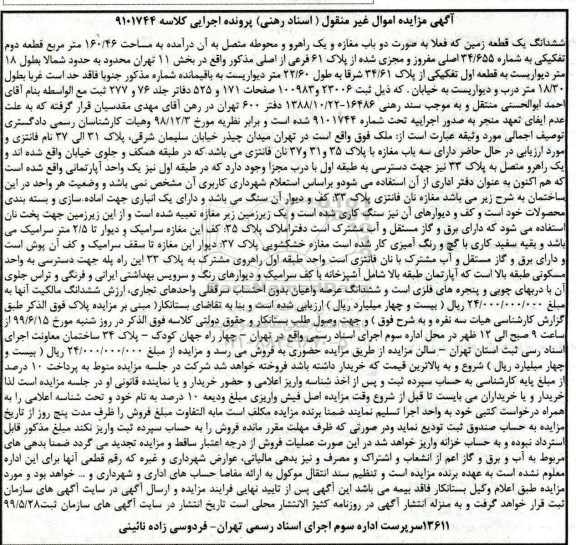 آگهی مزایده اموال غیر منقول ( اسناد رهنی) پرونده اجرایی کلاسه ۹۱۰۱۷۴۴
ششدانگ یک قطعه زمین که فعلا به صورت دو باب مغازه و یک راهرو و محوطه متصل به آن درآمده به مساحت ۱۶۰/۴۶ متر مربع قطعه دوم
تفکیکی به شماره ۳۴/۶۵۵ اصلی مفروز و مجزی شده از پلاک ۶۱ فرعی از اصلی مذکور واقع در بخش ۱۱ تهران محدود به حدود شمالا بطول ۱۸
متر دیواریست به قطعه اول تفکیکی از پلاک ۳۴/۶۱ شرقا به طول ۲۲/۶۰ متر دیواریست به باقیمانده شماره مذکور جنوبا فاقد حد است غربا بطول
۱۸/۳۰ متر درب و دیواریست به خیابان . که ذیل ثبت ۲۳۰۰۶ و ۱۰۰۹۸۳ صفحات ۱۷۱ و ۵۲۵ دفاتر جلد ۷۶ و ۲۷۷ ثبت مع الواسطه بنام آقای
احمد ابوالحسنی منتقل و به موجب سند رهنی ۱۶۴۸۶-۱۳۸۸/۱۰/۲۲ دفتر ۶۰۰ تهران در رهن آقای مهدی مقدسیان قرار گرفته که به علت
عدم ایفای تعهد منجر به صدور اجراییه تحت شماره ۹۱۰۱۷۴۴ شده است و برابر نظریه مورخ ۹۸/۱۲/۳ وهیات کارشناسان رسمی دادگستری
توصیف اجمالی مورد وثیقه عبارت است از: ملک فوق واقع است در تهران میدان چیذر خیابان سلیمان شرقی، پلاک ۳۱ الی ۳۷ نام فانتزی و
مورد ارزیابی در حال حاضر دارای سه باب مغازه با پلاک ۳۵ و ۳۱ و ۳۷ نان فانتزی می باشد.که در طبقه همکف و جلوی خیابان واقع شده اند و
یک راهرو متصل به پلاک ۳۳ نیز جهت دسترسی به طبقه اول با درب مجزا وجود دارد که در طبقه اول نیز یک واحد آپارتمانی واقع شده است
که هم اکنون به عنوان دفتر اداری از آن استفاده می شودو براساس استعلام شهرداری کاربری آن مشخص نمی باشد و وضعیت هر واحد در این
ساختمان به شرح زیر می باشد مغازه نان فانتزی پلاک ۳۱ کف و دیوار آن سنگ می باشد و دارای یک انباری جهت اماده سازی و بسته بندی
محصولات خود است و کف و دیوارهای آن نیز سنگ کاری شده است و یک زیرزمین زیر مغازه تعبیه شده است و از این زیرزمین جهت پخت نان
استفاده می شود که دارای برق و گاز مستقل و آب مشترک است دفتراملاک پلاک ۳۵، کف این مغازه سرامیک و دیوار تا ۲/۵ متر سرامیک می
باشد و بقیه سفید کاری با گچ و رنگ آمیزی کار شده است مغازه خشکشویی پلاک ۳۷، دیوار این مغازه تا سقف سرامیک و کف آن پوش است
و دارای برق و گاز مستقل و آب مشترک با نان فانتزی است واحد طبقه اول راهروی مشترک به پلاک ۳۳ این راه پله جهت دسترسی به واحد
مسکونی طبقه بالا است که آپارتمان طبقه بالا شامل آشپزخانه با کف سرامیک و دیوارهای رنگ و سرویس بهداشتی ایرانی و فرنگی و تراس جلوی
آن با دربهای چوبی و پنجره های فلزی است و ششدانگ عرصه واعیان بدون احتساب سرقفلی واحدهای تجاری، ارزش ششدانگ مالکیت آنها به
مبلغ ۲۴/۰۰۰/۰۰۰/۰۰۰ ریال ( بیست و چهار میلیارد ریال ) ارزیابی شده است و بنا به تقاضای بستانکار( مبنی بر مزایده پلاک فوق الذکر طبق
گزارش کارشناسی هیات سه نفره و به شرح فوق ) و جهت وصول طلب بستانکار و حقوق دولتی کلاسه فوق الذکر در روز شنبه مورخ ۹۹/۶/۱۵ از
ساعت ۹ صبح الی ۱۲ ظهر در محل اداره سوم اجرای اسناد رسمی واقع در تهران – چهار راه جهان کودک – پلاک ۳۴ ساختمان معاونت اجرای
اسناد رسی ثبت استان تهران – سالن مزایده از طریق مزایده حضوری به فروش می رسد و مزایده از مبلغ ۲۴/۰۰۰/۰۰۰/۰۰۰ ریال ( بیست و
چهار میلیارد ریال ) شروع و به بالاترین قیمت که خریدار داشته باشد فروخته خواهد شد شرکت در جلسه مزایده منوط به پرداخت ۱۰ درصد
از مبلغ پایه کارشناسی به حساب سپرده ثبت و پس از اخذ شناسه واریز اعلامی و حضور خریدار و یا نماینده قانونی او در جلسه مزایده است لذا
خریدار و یا خریداران می بایست تا قبل از شروع وقت مزایده اصل فیش واریزی مبلغ ودیعه ۱۰ درصد به نام خود و تحت شناسه اعلامی را به
همراه درخواست کتبی خود به واحد اجرا تسلیم نمایند ضمنا برنده مزایده مکلف است مابه التفاوت مبلغ فروش را ظرف مدت پنج روز از تاریخ
مزایده به حساب صندوق ثبت تودیع نماید ودر صورتی که ظرف مهلت مقرر مانده فروش را به حساب سپرده ثبت واریز نکند مبلغ مذکور قابل
استرداد نبوده و به حساب خزانه واریز خواهد شد در این صورت عملیات فروش از درجه اعتبار ساقط و مزایده تجدید می گردد ضمنا بدهی های
مربوط به آب و برق و گاز اعم از انشعاب و اشتراک و مصرف و نیز بدهی مالیاتی، عوارض شهرداری و غیره که رقم قطعی آنها برای این اداره
معلوم نشده است به عهده برنده مزایده است و تنظیم سند انتقال موکول به ارائه مفاصا حساب های اداری و شهرداری و ... خواهد بود و مورد
مزایده طبق اعلام وکیل بستانکار فاقد بیمه می باشد این آگهی پس از تایید نهایی فرایند مزایده و ارسال آگهی در سایت آگهی های سازمان
ثبت قرار خواهد گرفت و به منزله انتشار آگهی در روزنامه کثیر الانتشار محلی است تاریخ انتشار در سایت آگهی های سازمان ثبت۹۹/۵/۲۸
۱۳۶۱۱سرپرست اداره سوم اجرای اسناد رسمی تهران- فردوسی زاده نائینی